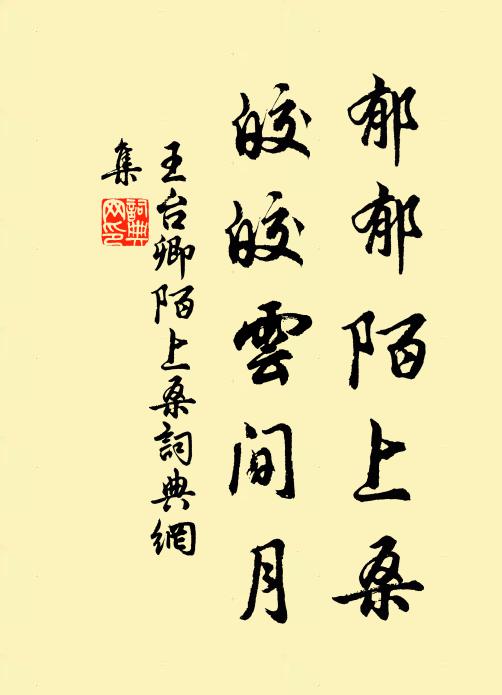 郁郁陌上桑
皎皎雲间月
王台卿陌上桑詞典網
集
詞典网印